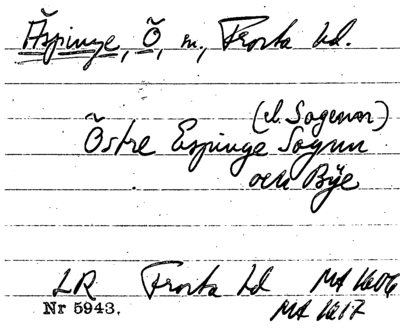 Äspinge, Ö, sn, Frosta hd.
(el. Sogenn)
Östre Espinge Sognn
och Bÿe
LR Frosta hd MA 1606
Nr 5943. MA 1617